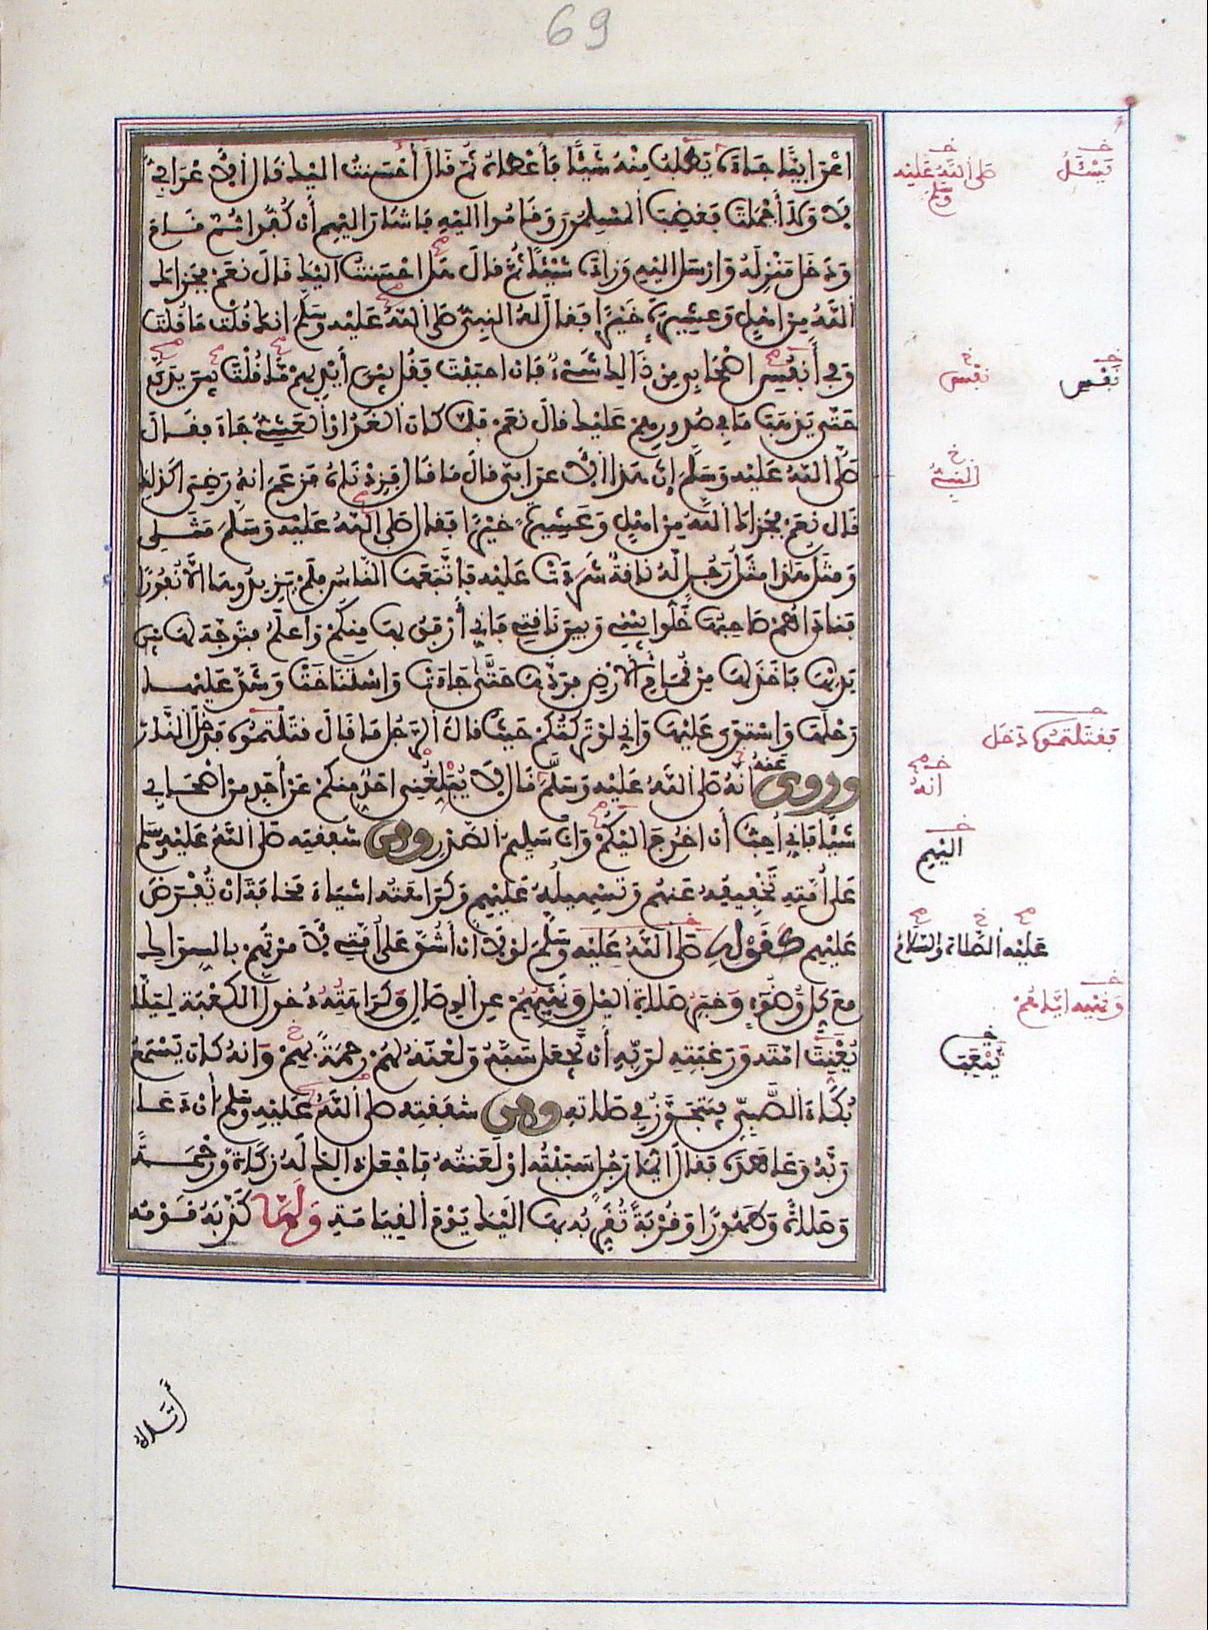 69
اعْرَابِيًّا جَاءَهُ يَطْلُبُ مِنْهُ شَيْئًا فَأَعْطَاهُ ثُمَّ قَالَ أَحْسَنتُ اليْكَ قَالَ الْأَعْرَابِيُّ
لَا وَلَا أَجْمَلْتَ فَغَضِبَ الْمُسْلِمُونَ وَقَامُوا إليْهِ فَأشَارَ اليْهِمْ أَن كُفُّوا ثُمَّ قَامَ
وَدَخَلَ مَنْزِلَهُ وَارْسَلَ اليْهِ وَزَادَهُ شَيْئًا ثُمَّ قالَ هل احْسَنتُ اليْكَ قَالَ نعَمْ فجَزَاكَ
اللَّهُ مِن اهْلٍ وَعشِيرَةٍ خَيْرًا فَقالَ لَهُ النبِيّ صَلى اللَّهُ عَلَيْهِ وَسَلَّمَ انكَ قُلْتَ مَا قُلْتَ
وَفِي أَنفُسِ اصْحَابِي مِن ذَالِكَ شَيْءٌ فَإن احبَبْتَ فَقُل بين أَيْدِيهِمْ مَا قُلْتَ بيْنَ يَدَيَّ
حَتَّى يَذهَبَ مَا فِي صُدُورِهِمْ عَليْكَ قالَ نعَمْ فلمَّا كانَ الْغَدُ أوِ الْعَشِيُّ جَاءَ فقَالَ
صَلَّى اللهُ عَلَيْهِ وَسَلَّمَ إنَّ هَذَا الْأَعرَابيَّ قالَ مَا قَالَ فَزِدْنَاهُ فزَعَمَ انهُ رَضِيَ اكذَلِكَ
قَالَ نعَمْ فجَزَاكَ اللَّهُ مِن اهْلٍ وَعَشِيرَةٍ خيْرًا فَقال صَلى اللَّهُ عَلَيْهِ وَسَلَّمَ مَثَلِي
وَمثَلُ هَذَا مثَلُ رَجُلٍ لَهُ نَاقةٌ شَرَدَتْ عَليْهِ فَاتَّبَعَهَا النَّاسُ فلَمْ يَزِيدُوهَا الَّا نُفُورًا
فنادَاهُمْ صَاحِبُهَا خَلُّوا بيْنِي وَبينَ نَاقتِي فَإنِّي أَرْفَقُ بهَا مِنكُمْ وَأعلَمُ فتَوَجَّهَ لهَا بيْنَ
يَديْهَا فَأخَذَ لهَا مِن قُمَامِ الْأَرْضِ فرَدَّهَا حَتَّى جَاءَتْ وَاسْتَنَاخَتْ وَشَدَّ عَليْهَا
رَحْلَهَا وَاسْتوَى عَليْهَا وَإنِّي لوْ تَرَكتُكُمْ حَيْثُ قالَ الرَّجُلُ مَا قَالَ فقتَلْتمُوهُ دخَلَ النَّارَ
وروى عَنهُ أَنهُ صَلى اللهُ عَلَيْهِ وَسَلَّمَ قَالَ لَا يُبْلِغُنِي احَدٌ مِنكُمْ عَنْ أَحَدٍ مِنْ اصْحَابِي
شَيْئًا فَإنِّي أُحِبُّ أَن اخرُجَ اليْكُمْ وَانَا سَلِيمُ الصَّدْرِ ومن شفَقتِه صَلى اللهُ عَليْهِ وَسَلم
عَلَى أُمَّتِهِ تَخْفِيفُهُ عَنهُمْ وَتسْهِيلُهُ عَليْهِمْ وَكرَاهَتُهُ اشيَاءَ مخَافةَ أَنْ تُفْرَضَ
عَليْهِمْ كَقَوْلِهِ صَلى اللهُ عَليْهِ وَسَلَّمَ لوْلَا أنْ أَشُقَّ عَلَى أُمَّتِي لَأَمَرْتُهُمْ بالسِّوَاكِ
معَ كلِّ وُضُوءٍ وَخبَرُ صَلاةِ اليْلِ وَنَهْيُهُمْ عنِ الْوصَالِ وَكَرَاهَتُهُ دُخولَ الْكَعْبَةِ لِيَلَّا
يُعَنِّتَ امّتَهُ وَرَغبَتِهِ لرَبِّهِ أَن يَّجْعَلَ سَبَّهُ وَلَعْنَهُ لهُمْ رحمَةً بهِمْ وَأنهُ كانَ يَسْمَعُ
بُكَاءَ الصَّبِيِّ فيَتَجَوَّزُ فِي صَلاتهِ ومن شفَقتِهِ صَلى اللهُ عَليْهِ وَسَلم أَن دَعَا
رَبَّهُ وَعَاهَدَهُ فقالَ ايُّمَا رَجُلٍ سَبَبْتُهُ اوْ لَعَنتُهُ فاجْعَلْ ذَالِكَ لَهُ زكَاةً وَرَحْمَةً
وَصَلاةً وَطَهُورًا وَقُرْبَةً تُقَرِّبُهُ بهَا اليْكَ يَوْمَ الْقِيَامَةِ وَلَمَّا كَذَّبَهُ قَوْمُه
يَسْئَلُ
صَلى اللهُ عَلَيْهِ وَسَلَّم
نَفْسِ
نفْس
النبيُّ
فَقتَلْتمُوهُ دَخَلَ
انهُ
اليْهِمْ
عَليْهِ الصَّلاة وَالسَّلَامُ
وَنَهْيُه ايَّاهُمْ
يُتْعِبَ
أَتَاهُ